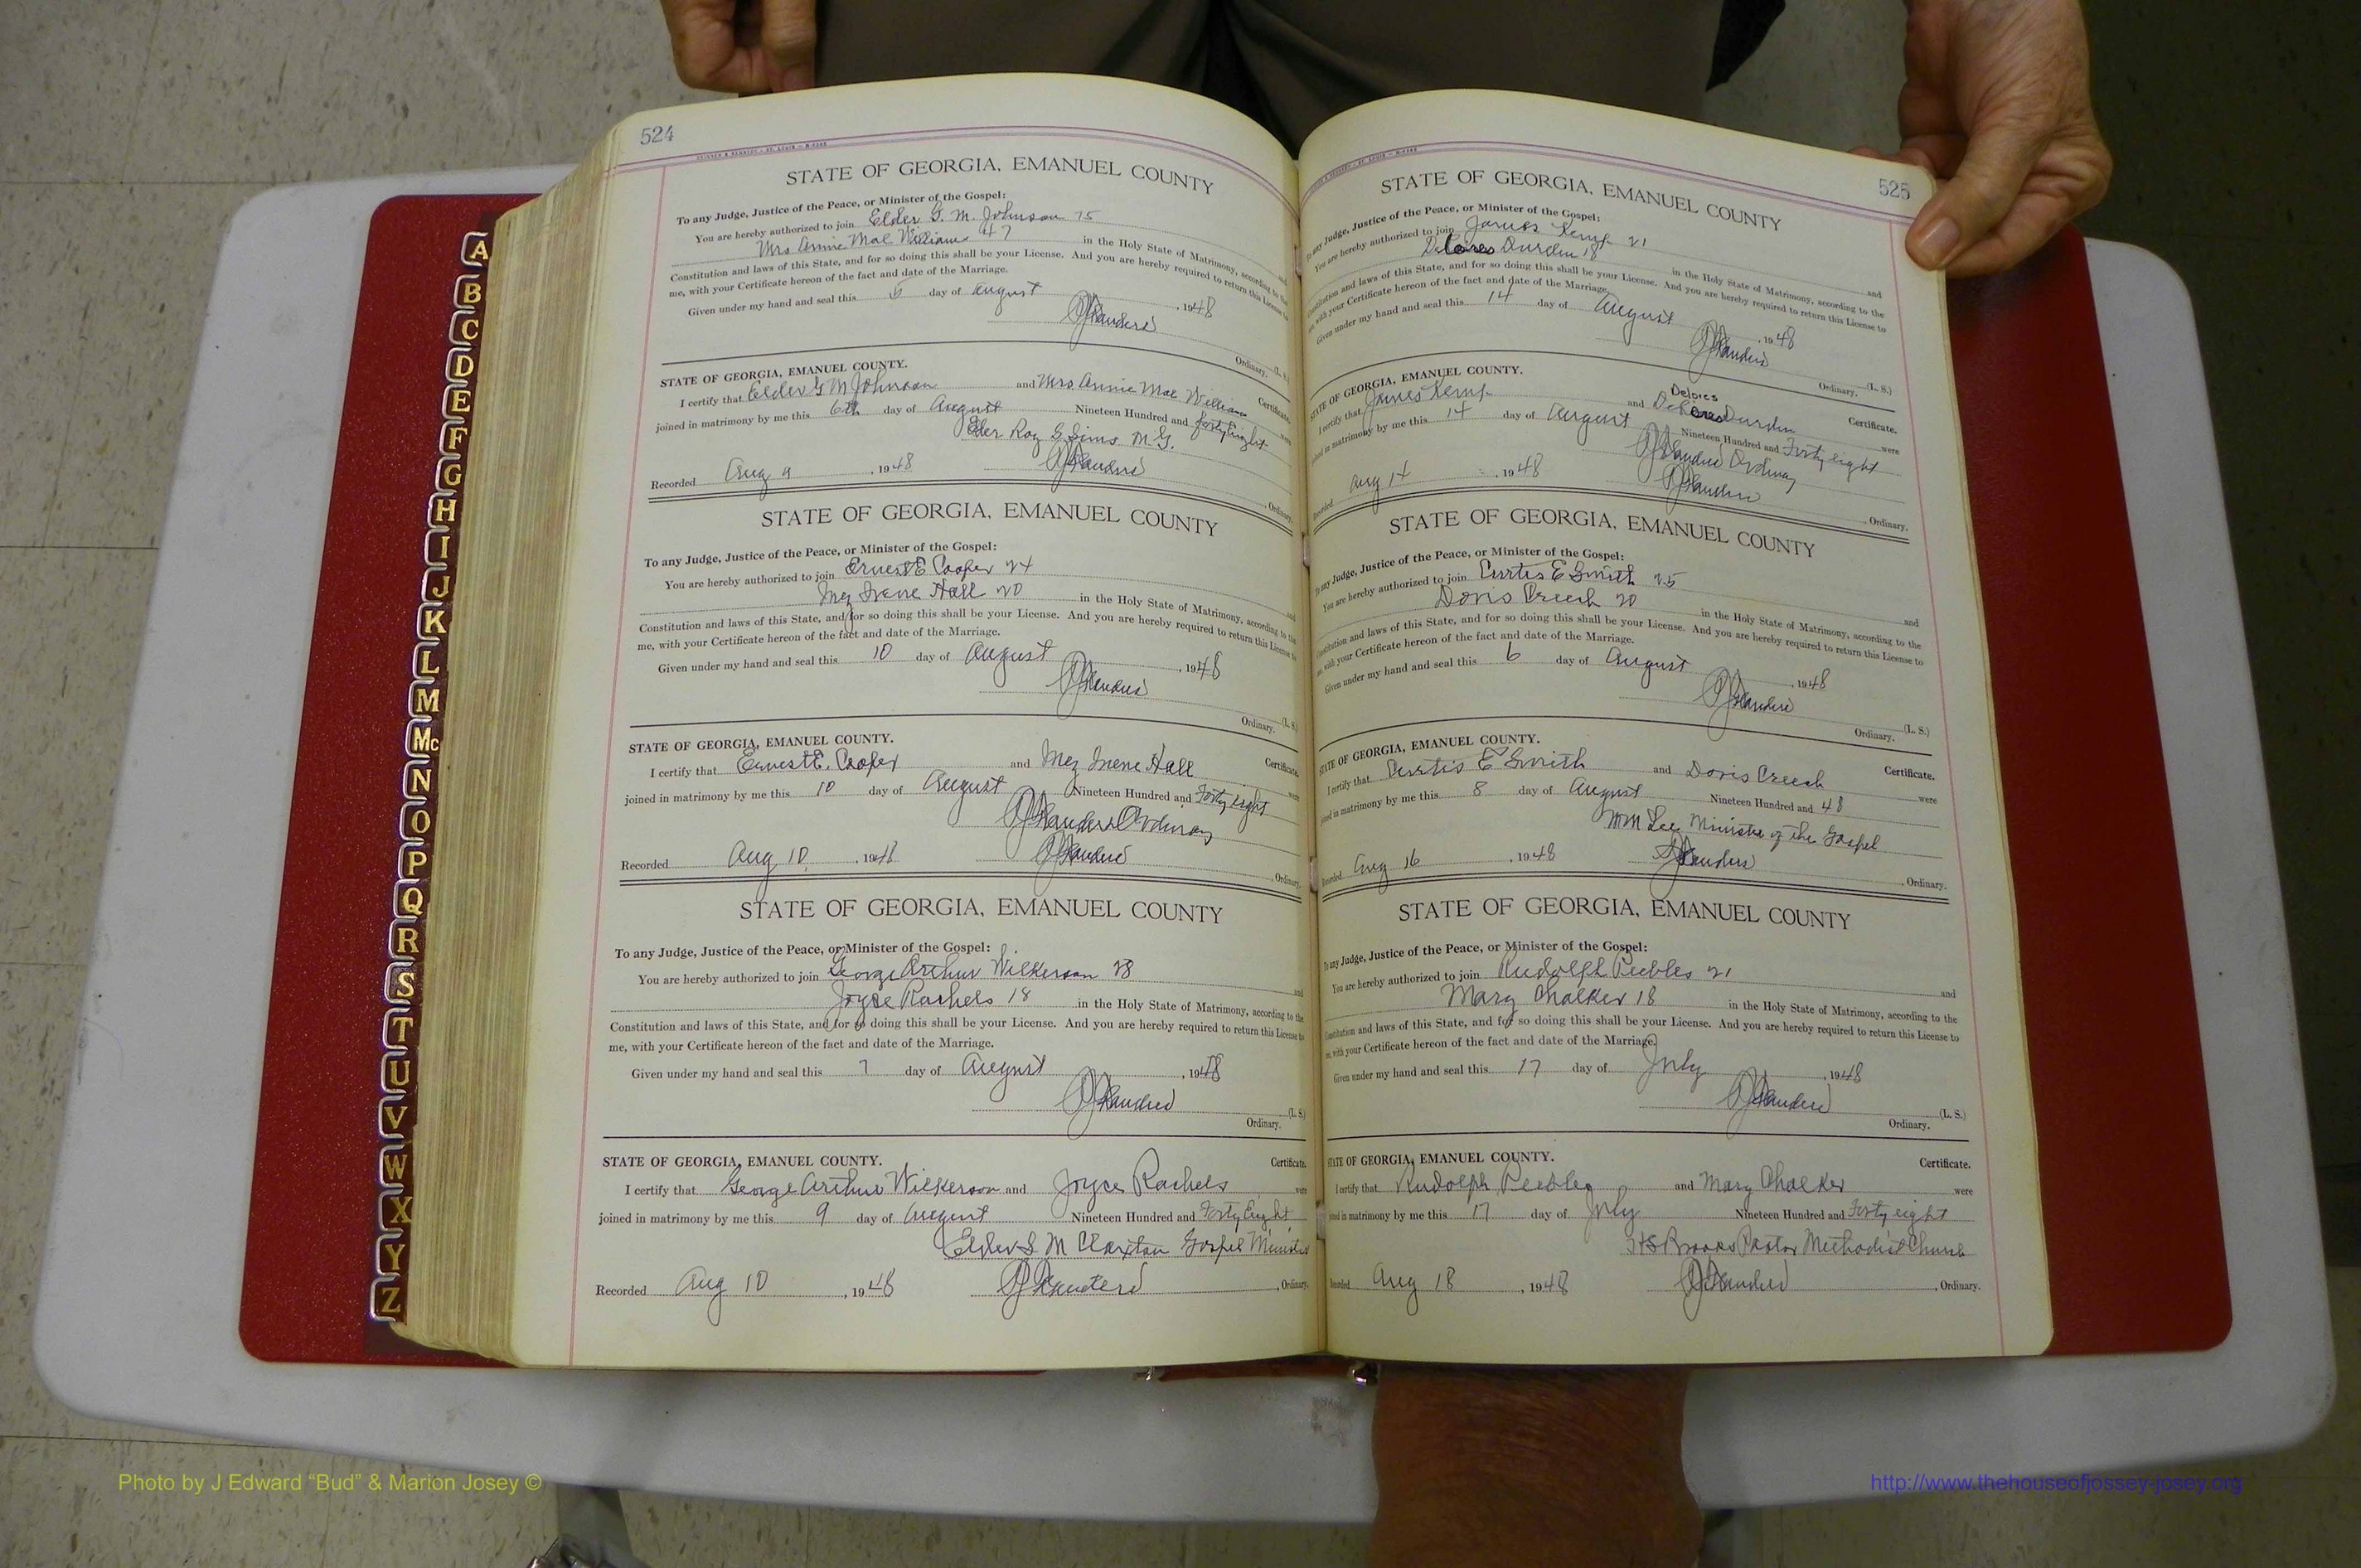 524
STATE OF GEORGIA, EMANUEL COUNTY
To any Judge, Justice of the Peace, or Minister of the Gospel:
You are hereby authorized to join Elder G. M. Johnson 75 and
Mrs Annie Mae Williams 47 in the Holy State of Matrimony, according to the
Constitution and laws of this State, and for so doing this shall be your License. And you are hereby required to return this License to
me, with your Certificate hereon of the fact and date of the Marriage.
Given under my hand and seal this 5 day of August, 1948
(L. S.)
Ordinary.
STATE OF GEORGIA, EMANUEL COUNTY. Certificate.
I certify that Elder G M Johnson and Mrs Annie Mae Williams were
joined in matrimony by me this 6th day of August Nineteen Hundred and forty Eight
Elder Roy G Sims M. G.
Recorded Aug 9, 1948, Ordinary.
STATE OF GEORGIA, EMANUEL COUNTY
To any Judge, Justice of the Peace, or Minister of the Gospel:
You are hereby authorized to join Ernest E Cooper 24 and
Irene Hall 20 in the Holy State of Matrimony, according to the
Constitution and laws of this State, and for so doing this shall be your License. And you are hereby required to return this License to
me, with your Certificate hereon of the fact and date of the Marriage.
Given under my hand and seal this 10 day of August, 1948
(L. S.)
Ordinary.
STATE OF GEORGIA, EMANUEL COUNTY. Certificate.
I certify that Ernest E. Cooper and Irene Hall were
joined in matrimony by me this 10 day of August Nineteen Hundred and Forty eight
Ordinary
Recorded Aug 10, 1948, Ordinary.
STATE OF GEORGIA, EMANUEL COUNTY
To any Judge, Justice of the Peace, or Minister of the Gospel:
You are hereby authorized to join George Arthur Wilkerson 28 and
Joyce Rachels 18 in the Holy State of Matrimony, according to the
Constitution and laws of this State, and for so doing this shall be your License. And you are hereby required to return this License to
me, with your Certificate hereon of the fact and date of the Marriage.
Given under my hand and seal this 7 day of August, 1948
(L. S.)
Ordinary.
STATE OF GEORGIA, EMANUEL COUNTY. Certificate.
I certify that George Arthur Wilkerson and Joyce Rachels were
joined in matrimony by me this 9 day of August Nineteen Hundred and Forty Eight
Elder S M Claxton Gospel Minister
Recorded Aug 10, 1948, Ordinary.
525
STATE OF GEORGIA, EMANUEL COUNTY
To any Judge, Justice of the Peace, or Minister of the Gospel:
You are hereby authorized to join James Kemp 21 and
Delores Durden 18 in the Holy State of Matrimony, according to the
Constitution and laws of this State, and for so doing this shall be your License. And you are hereby required to return this License to
me, with your Certificate hereon of the fact and date of the Marriage.
Given under my hand and seal this 14 day of August, 1948
(L. S.)
Ordinary.
STATE OF GEORGIA, EMANUEL COUNTY. Certificate.
Delores
I certify that James Kemp and Delores Durden were
joined in matrimony by me this 14 day of August Nineteen Hundred and Forty eight
Ordinary
Recorded Aug 14, 1948, Ordinary.
STATE OF GEORGIA, EMANUEL COUNTY
To any Judge, Justice of the Peace, or Minister of the Gospel:
You are hereby authorized to join Curtis E Smith 25 and
Doris Creech 20 in the Holy State of Matrimony, according to the
Constitution and laws of this State, and for so doing this shall be your License. And you are hereby required to return this License to
me, with your Certificate hereon of the fact and date of the Marriage.
Given under my hand and seal this 6 day of August, 1948
(L. S.)
Ordinary.
STATE OF GEORGIA, EMANUEL COUNTY. Certificate.
I certify that Curtis E Smith and Doris Creech were
joined in matrimony by me this 8 day of August Nineteen Hundred and 48
Lee Minister of the Gospel
Recorded Aug 16, 1948, Ordinary.
STATE OF GEORGIA, EMANUEL COUNTY
To any Judge, Justice of the Peace, or Minister of the Gospel:
You are hereby authorized to join Rudolph Peebles 21 and
Mary Chalker 18 in the Holy State of Matrimony, according to the
Constitution and laws of this State, and for so doing this shall be your License. And you are hereby required to return this License to
me, with your Certificate hereon of the fact and date of the Marriage.
Given under my hand and seal this 17 day of July, 1948
(L. S.)
Ordinary.
STATE OF GEORGIA, EMANUEL COUNTY. Certificate.
I certify that Rudolph Peebles and Mary Chalker were
joined in matrimony by me this 17 day of July Nineteen Hundred and Forty eight
Brooks Pastor Methodist Church
Recorded Aug 18, 1948, Ordinary.
A
B
C
D
E
F
G
H
I
J
K
L
M
Mc
N
O
P
Q
R
S
T
U
V
W
X
Y
Z
Photo by J Edward “Bud” & Marion Josey ©
http://www.thehouseofjossey-josey.org